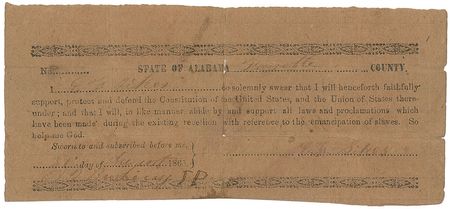 No. STATE OF ALABAMA COUNTY.
I do solemnly swear that I will henceforth faithfully
support, protect and defend the Constitution of the United States, and the Union of States there-
under; and that I will, in like manner abide by and support all laws and proclamations which
have been made during the existing rebelion with reference to the emancipation of slaves. So
help me God.
Sworn to and subscribed before me,
day of 186
J P